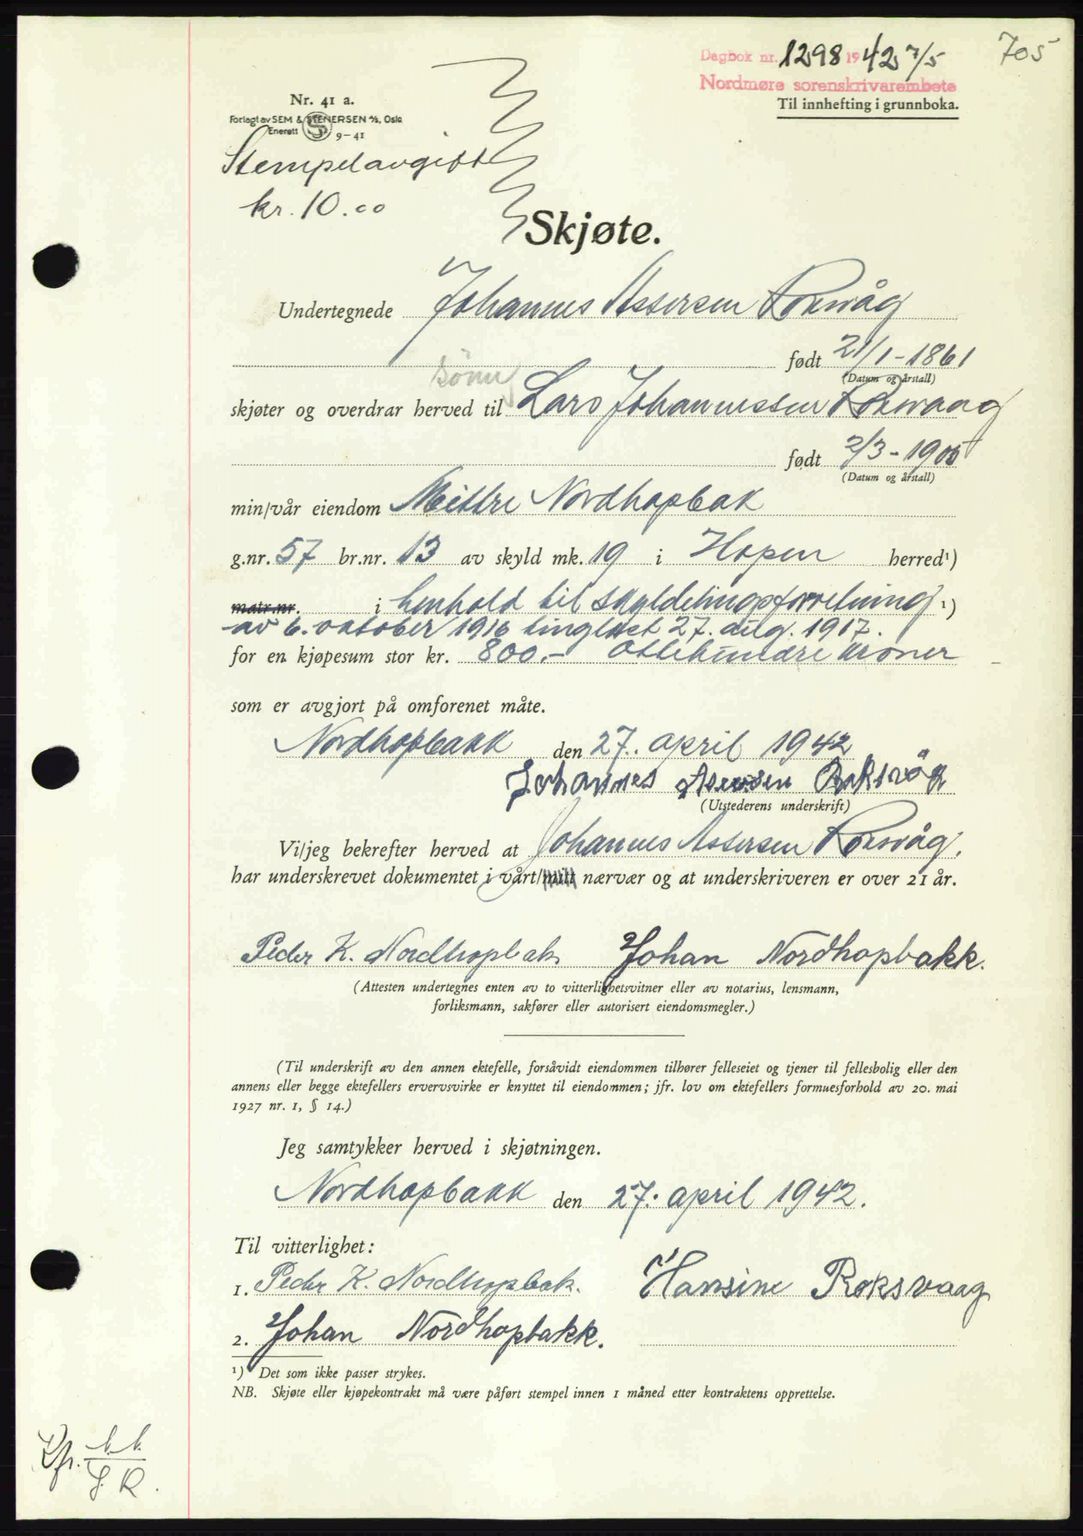 705
Dagbok nr. 1298 1942 7/5
Nordmøre sorenskrivarembete
Til innhefting i grunnboka.
Nr. 41 a.
Forlagt av SEM & STENERSEN A/S, Oslo
Enerett 9-41
Stempelavgift
kr. 10.00
Skjøte.
Undertegnede Johannes Assersen Roksvåg
født 21/1-1861
(Datum og årstall)
sønn
skjøter og overdrar herved til Lars Johannessen Roksvaag
født 2/3-1905
(Datum og årstall)
min/vår eiendom Mittre Nordhopbak
g.nr. 57 br.nr. 13 av skyld mk. 19 i Hopen herred¹)
matr.nr. i henhold til skyldelingsforretning ¹)
av 6. oktober 1916 tinglest 27. aug. 1917.
for en kjøpesum stor kr. 800.- Ottehundre kroner
som er avgjort på omforenet måte.
Nordhopbakk den 27. april 1942
Johannes Assersen Roksvåg
(Utstederens underskrift)
Vi/jeg bekrefter herved at Johannes Assersen Roksvåg.
har underskrevet dokumentet i vårt/mitt nærvær og at underskriveren er over 21 år.
Peder K. Nordhopbak Johan Nordhopbakk.
(Attesten undertegnes enten av to vitterlighetsvitner eller av notarius, lensmann,
forliksmann, sakfører eller autorisert eiendomsmegler.)
(Til underskrift av den annen ektefelle, forsåvidt eiendommen tilhører felleseiet og tjener til fellesbolig eller den
annens eller begge ektefellers ervervsvirke er knyttet til eiendommen; jfr. lov om ektefellers formuesforhold av 20. mai
1927 nr. 1, § 14.)
Jeg samtykker herved i skjøtningen.
Nordhopbakk den 27. april 1942.
Til vitterlighet:
1. Peder K. Nordhopbak. Hansine Roksvaag
2. Johan Nordhopbakk.
¹) Det som ikke passer strykes.
NB. Skjøte eller kjøpekontrakt må være påført stempel innen 1 måned etter kontraktens opprettelse.